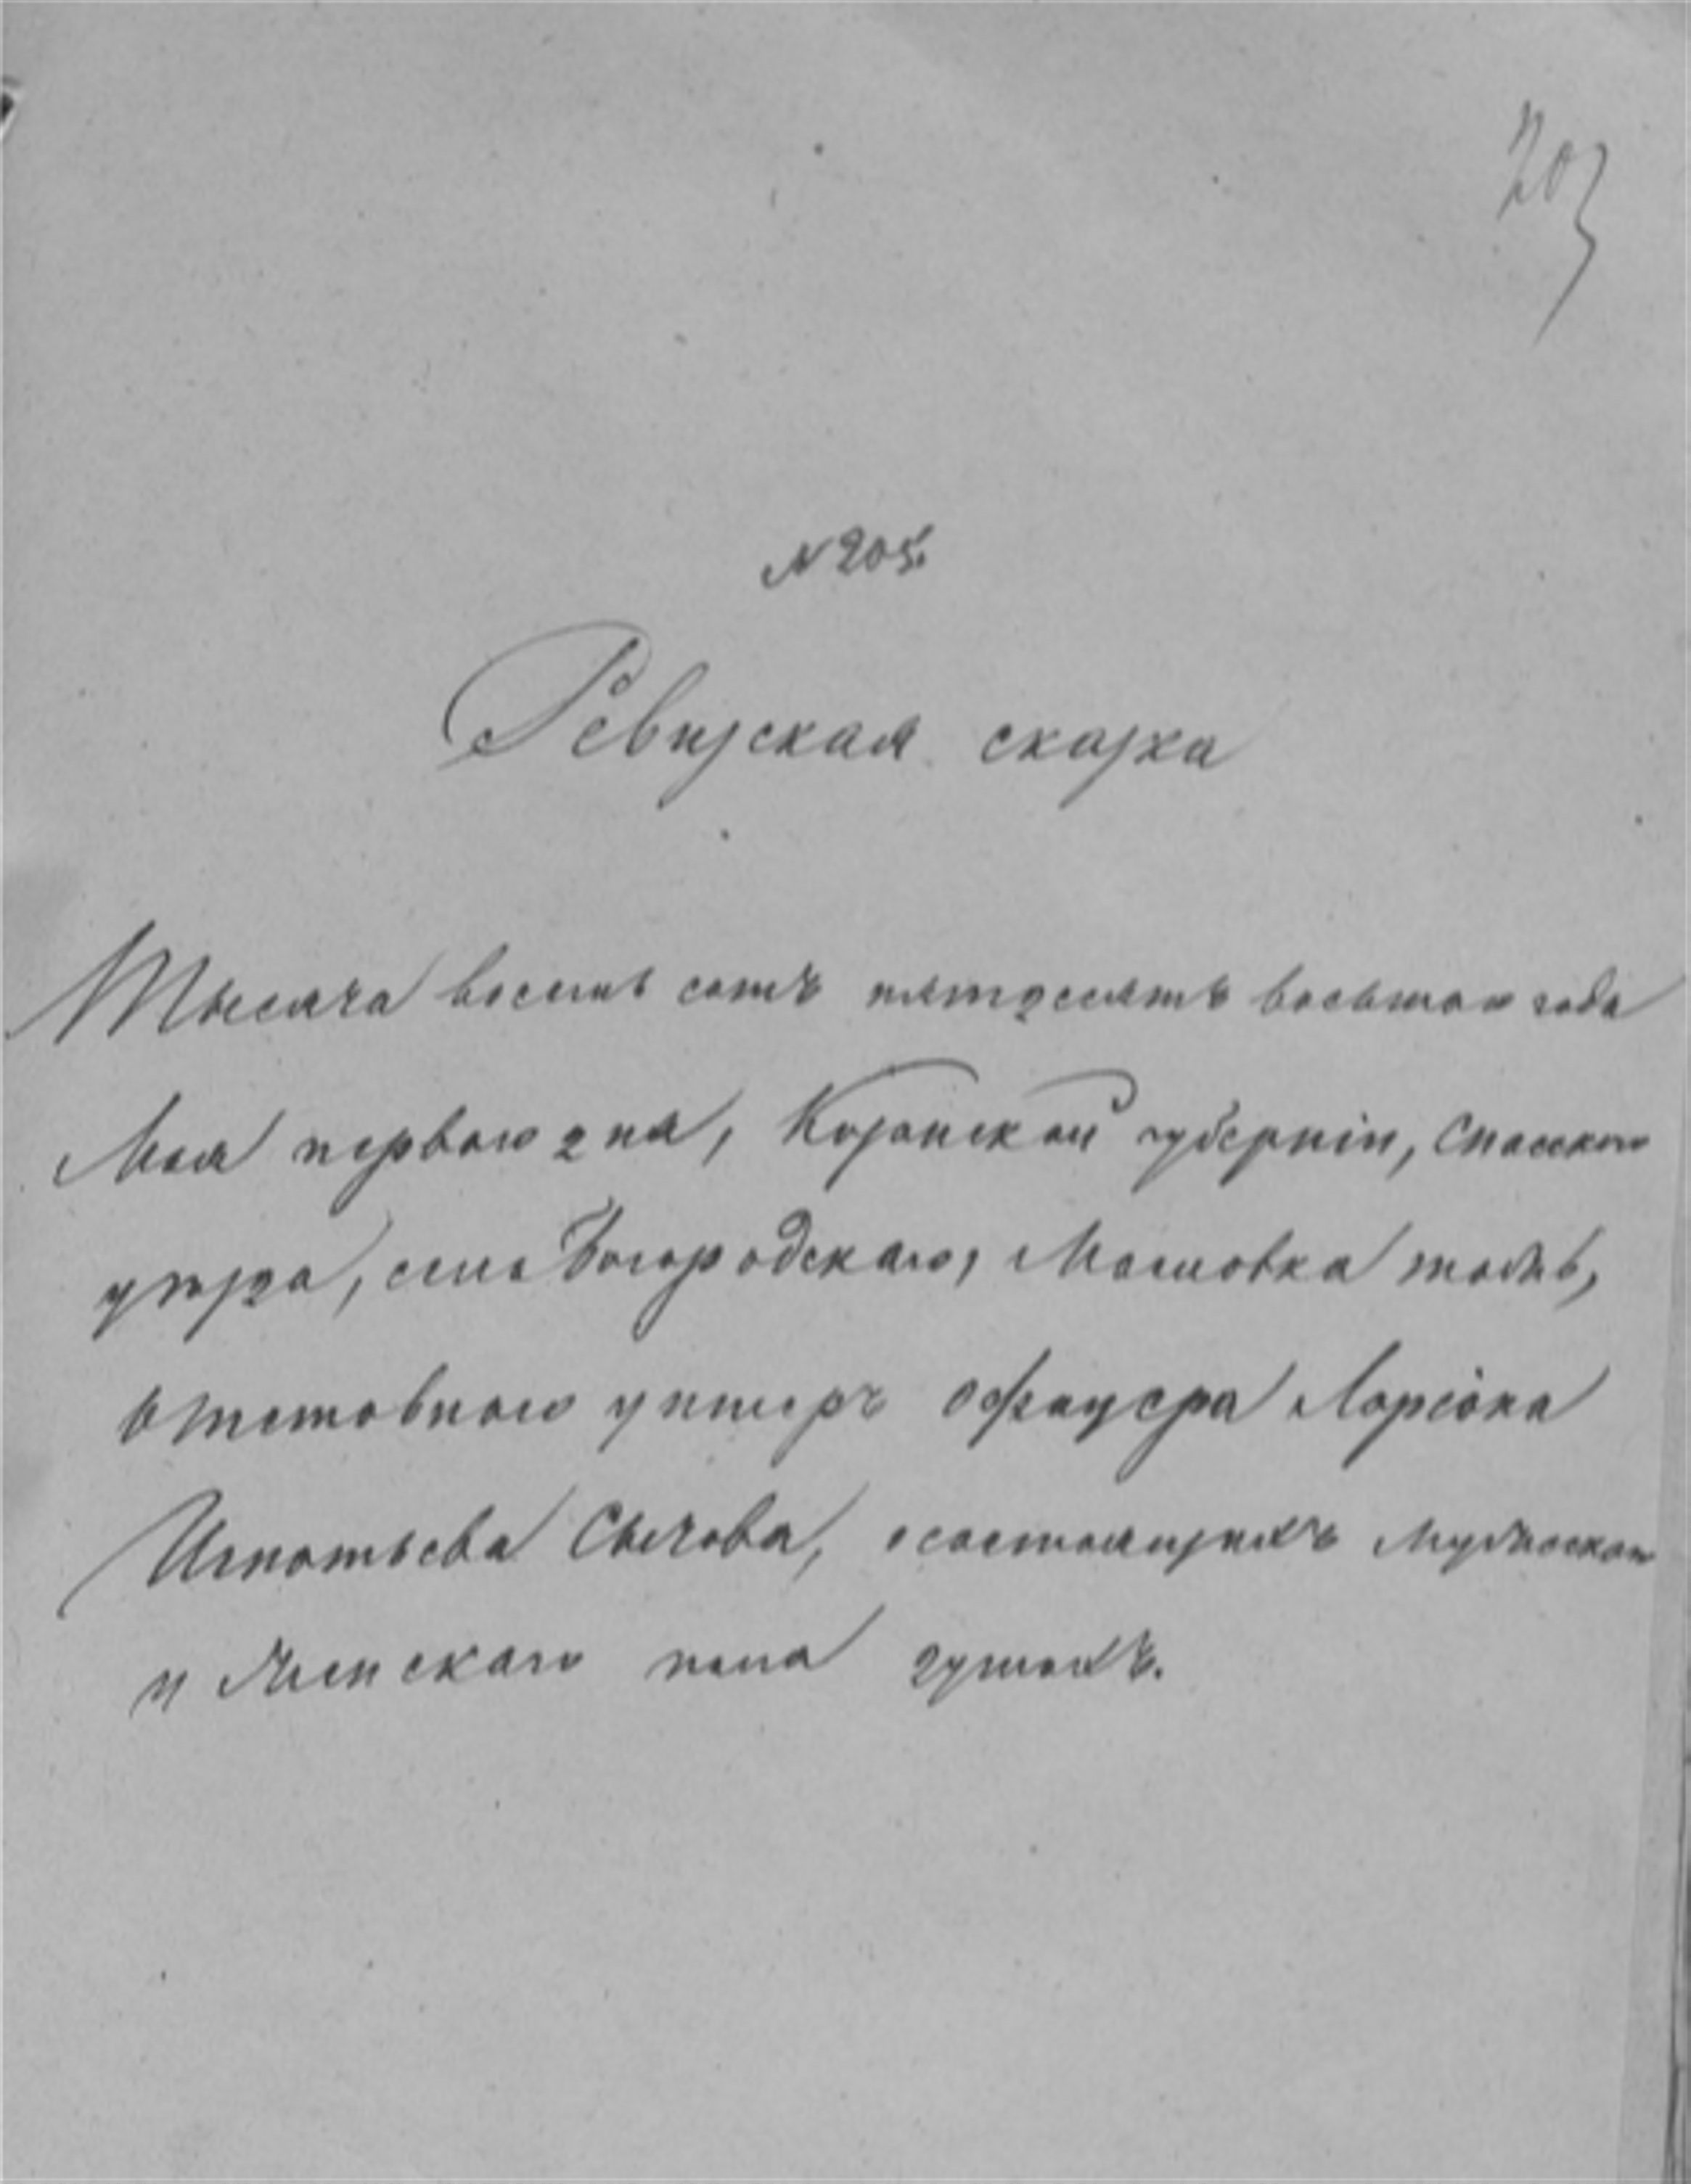 203
№ 205.
Ревизская сказка
Тысяча восемь сотъ пятдесятъ восьмаго года
Мая перваго дня, Казанской губернiи, Спасскаго
уѣзда, села Богородскаго, тожъ,
отставнаго унтеръ офицера Ларiона
Игнатьева Сычова, о состоящихъ мужескаго
и женскаго пола душахъ.